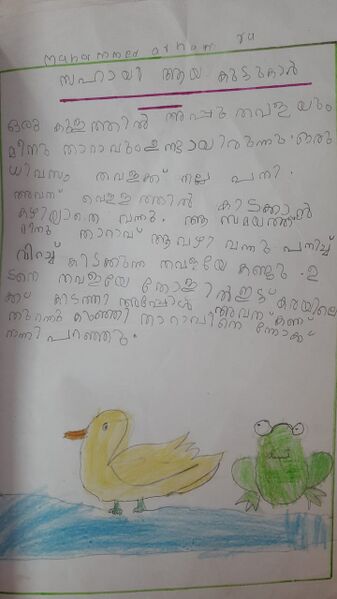 Muhammed arham
സഹായി ആയ കൂട്ടുകാർ
ഒരു കുളത്തിൽ അപ്പു തവളയും
മീനു താറാവും ഉണ്ടായിരുന്നു. ഒരു
ധിവസം തവളക്ക് നല്ല പനി.
അവന് വെള്ളത്തിൽ കിടക്കാൻ
കഴിയാതെ വന്നു. ആ സമയത്ത്
മീനു താറാവ് ആ വഴി വന്നു പനിച്ച്
വിറച്ച് കിടക്കുന്ന തവളയേ കണ്ടു. ഉ
ടനെ തവളയേ തോളിൽ ഇട്ട് കരയിലെ
ക്ക് കിടത്തി അപ്പോൾ അവന് കണ്ണ്
തുറന്നു താറാവിനെ നോക്കി
നന്നി പറഞ്ഞു.